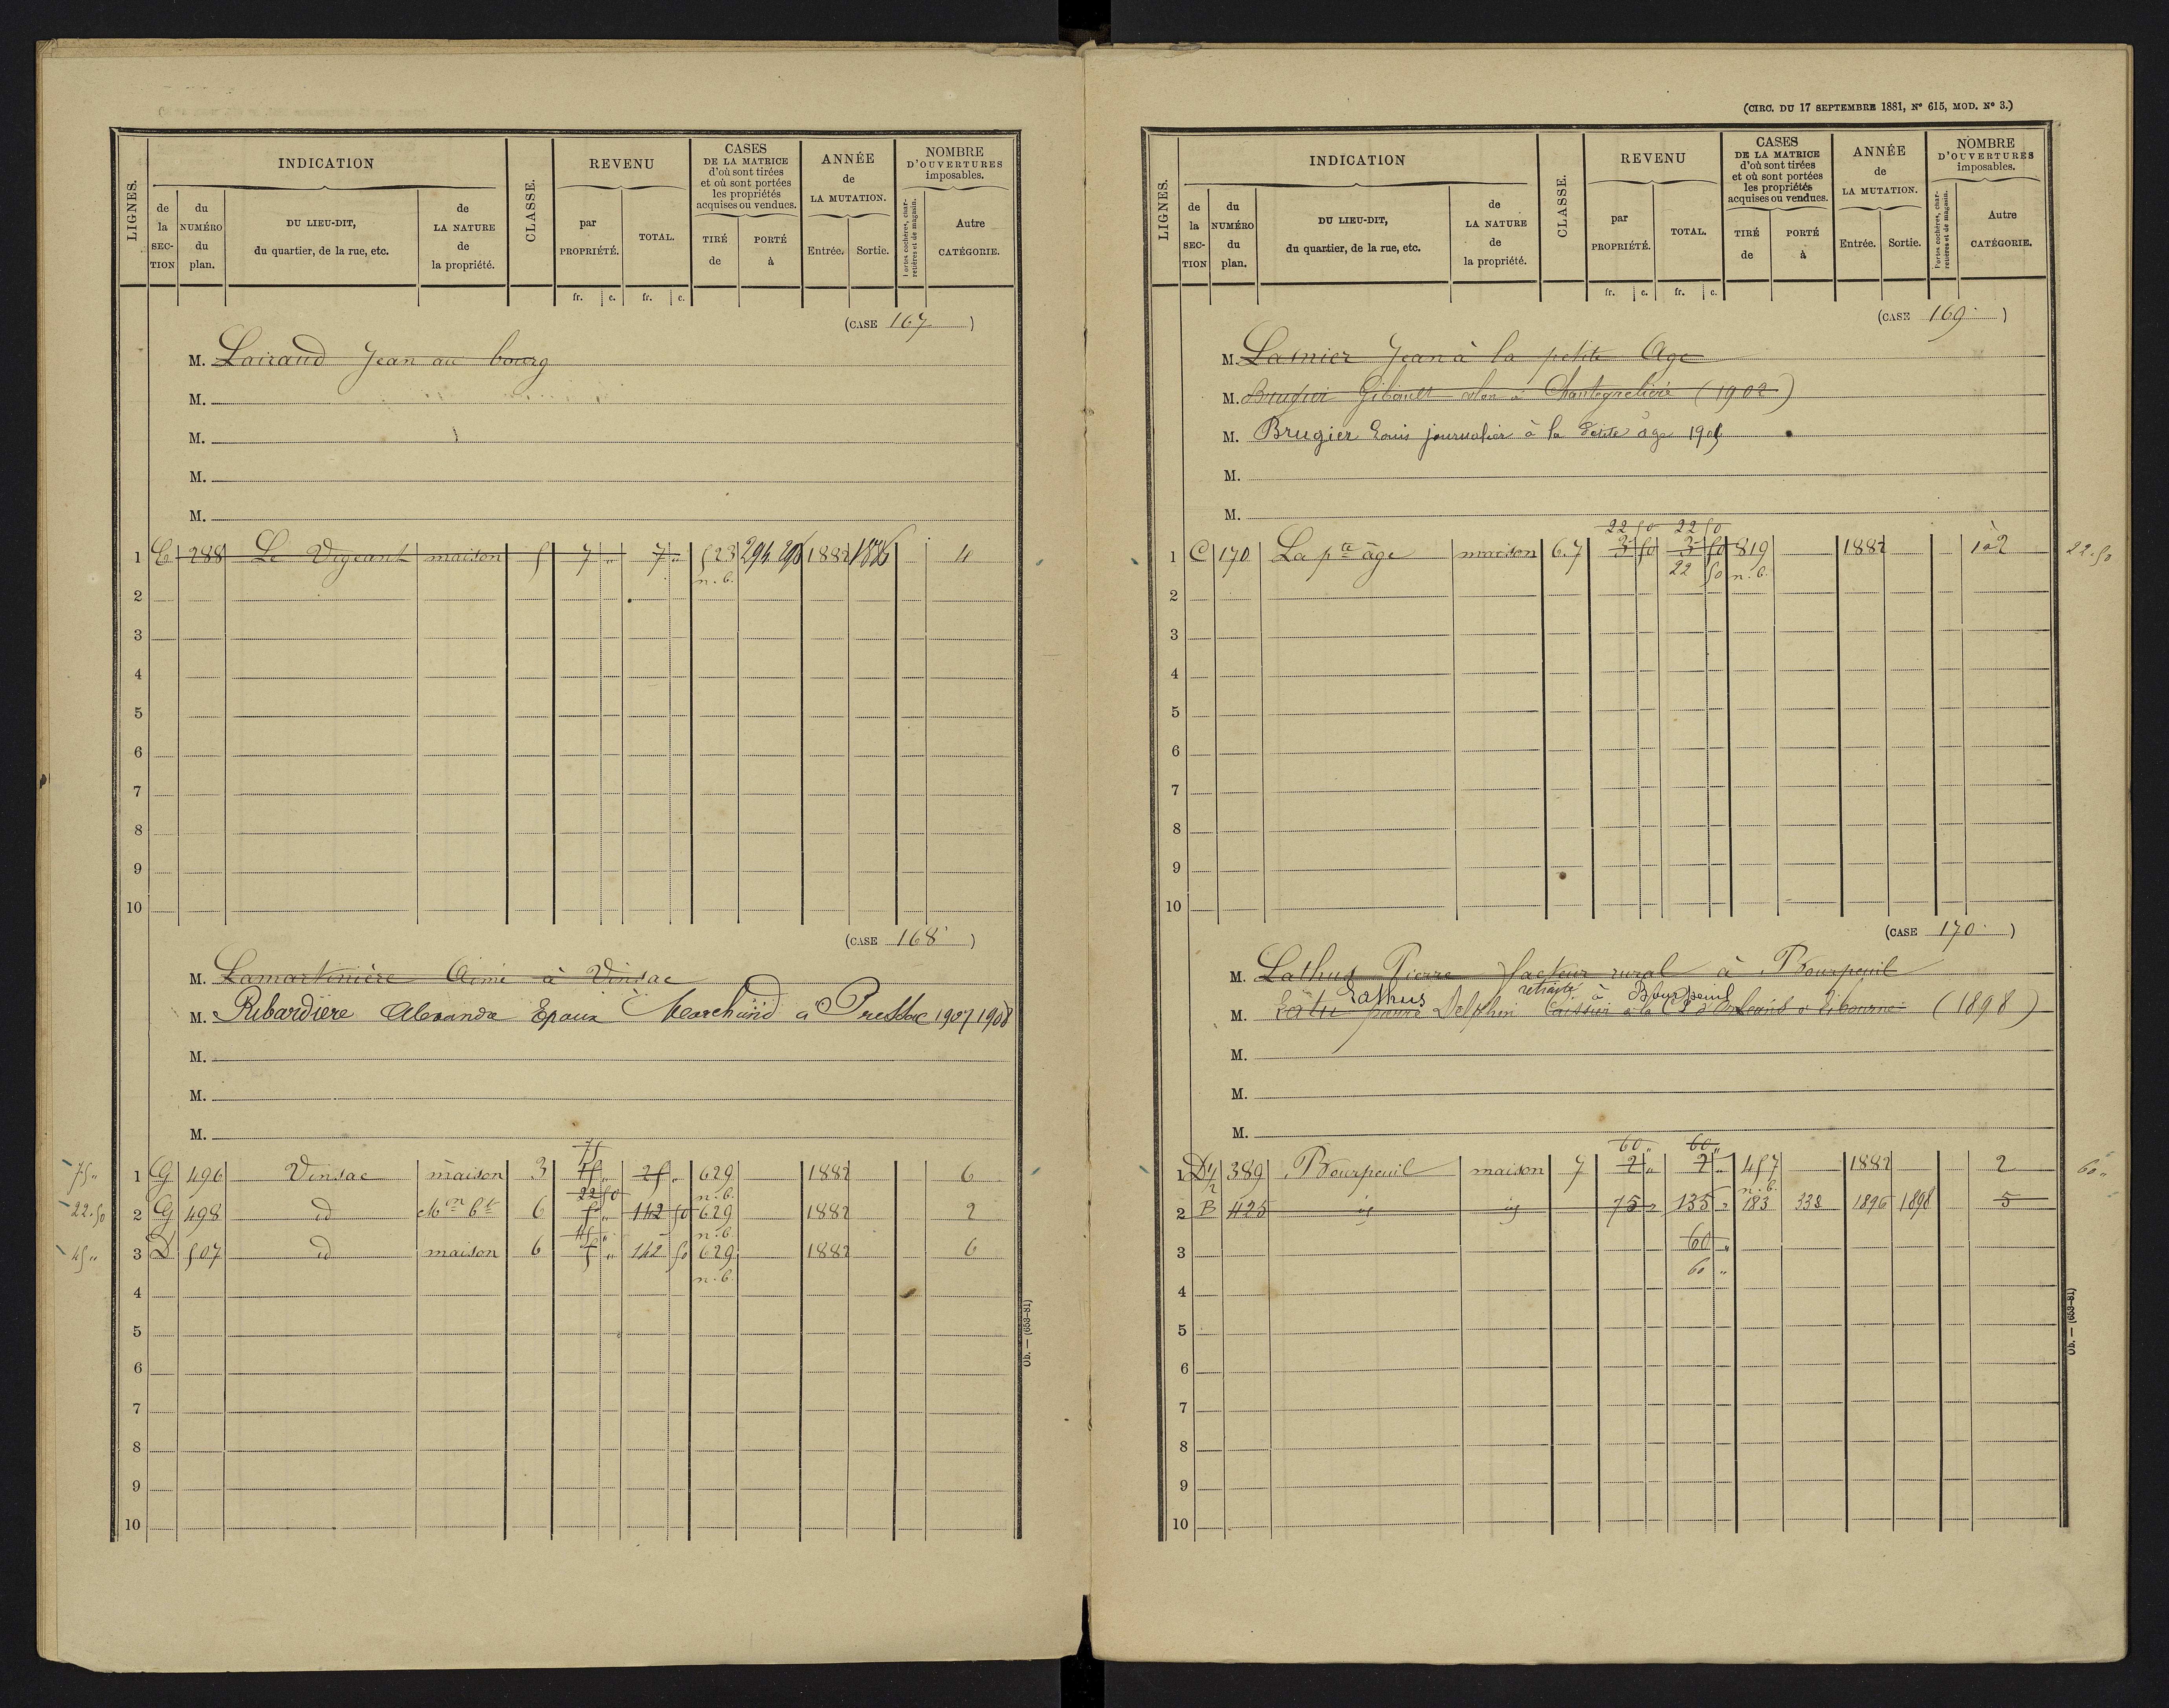 LIGNES.
INDICATION
de la SEC-TION
du NUMÉRO du plan.
DU LIEU-DIT, du quartier, de la rue, etc.
de LA NATURE de la propriété.
CLASSE.
REVENU
par PROPRIÉTÉ.
TOTAL.
fr. c. fr. c.
CASES DE LA MATRICE d'où sont tirées et où sont portées les propriétés acquises ou vendues.
TIRÉ de
PORTÉ à
ANNÉE de LA MUTATION.
Entrée. Sortie.
NOMBRE D'OUVERTURES imposables.
Portes cochères, charretières et de magasin.
Autre CATÉGORIE.
(CASE 167)
M. Lairaud Jean au bourg
M.
M.
M.
M.
1 C 288 Le Vigeant maison 5 7 " 7 " 523 294 1882 4
n.b.
2
3
4
5
6
7
8
9
10
(CASE 168)
M. Lamartinière Aimé à Vinsac
M. Ribardière Alexandre Epoux Marchand à Pressac 1907 1908
M.
M.
M.
75
75 " 1 G 496 Vinsac maison 3 25 " 629 1882 6
22 50 n.b.
22.50 2 G 498 id Mon Bt 6 5 " 142 50 629 1882 2
45 " n.b.
45 " 3 D 507 id maison 6 5 " 142 50 629 1882 6
n.b.
4
5
6
7
8
9
10
Ob. — (653-81)
(CIRC. DU 17 SEPTEMBRE 1881, N° 615, MOD. N° 3.)
LIGNES.
INDICATION
de la SEC-TION
du NUMÉRO du plan.
DU LIEU-DIT, du quartier, de la rue, etc.
de LA NATURE de la propriété.
CLASSE.
REVENU
par PROPRIÉTÉ.
TOTAL.
fr. c. fr. c.
CASES DE LA MATRICE d'où sont tirées et où sont portées les propriétés acquises ou vendues.
TIRÉ de
PORTÉ à
ANNÉE de LA MUTATION.
Entrée. Sortie.
NOMBRE D'OUVERTURES imposables.
Portes cochères, charretières et de magasin.
Autre CATÉGORIE.
(CASE 169)
M. Lasnier Jean à la petite Age
M. Brugier Gibault colon à Chantegrelière (1902)
M. Brugier Louis journalier à la Petite âge
M.
M.
22 50 22 50
1 C 170 La pte âge maison 6.7 3 50 3 50 819 1882 1 2 22.50
22 50 n.b.
2
3
4
5
6
7
8
9
10
(CASE 170)
M. Lathus Pierre facteur rural à Bourpeuil
Lathus retraité à Bourpeuil
M. Delphin Caissier à la Cie d'Orléans à Libourne (1898)
M.
M.
M.
60 " 60 "
1 D 1/2 389 Bourpeuil maison 7 2 " 2 " 457 1882 2 60 "
n.b.
2 B 425 id id 75 " 135 " 183 338 1896 1898 5
3 60 "
60 "
4
5
6
7
8
9
10
Ob. — (653-81)